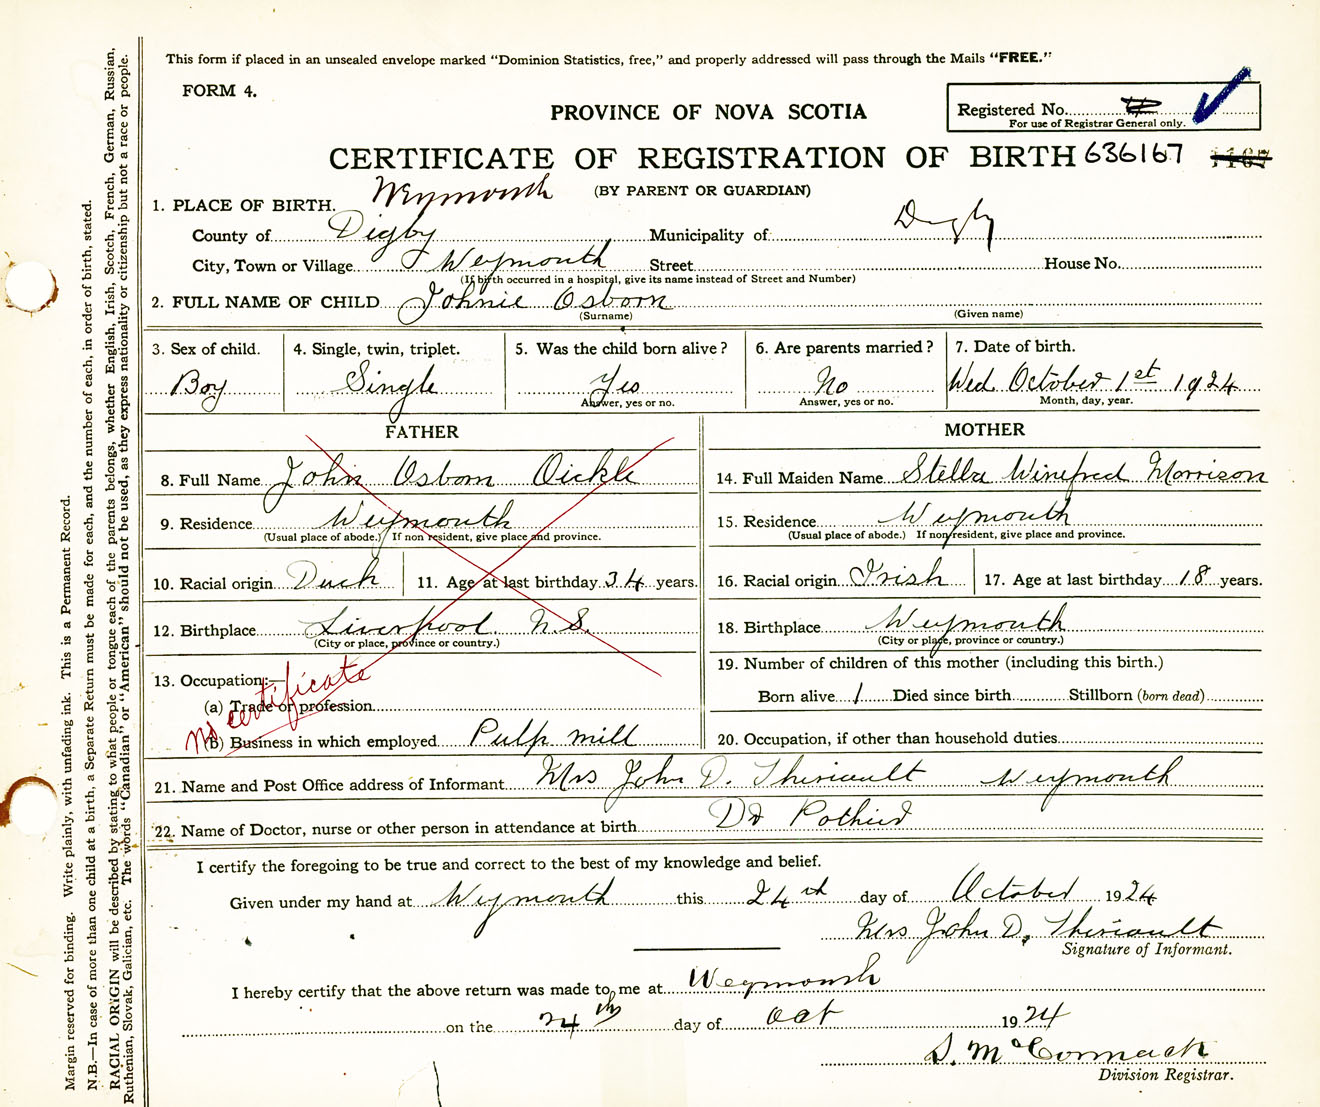 This form if placed in an unsealed envelope marked “Dominion Statistics, free,” and properly addressed will pass through the Mails “FREE.”
FORM 4.
PROVINCE OF NOVA SCOTIA
Registered No.
For use of Registrar General only.
CERTIFICATE OF REGISTRATION OF BIRTH 636167
(BY PARENT OR GUARDIAN)
Weymouth
1. PLACE OF BIRTH.
County of Digby Municipality of Digby
City, Town or Village Weymouth Street House No.
(If birth occurred in a hospital, give its name instead of Street and Number)
2. FULL NAME OF CHILD Johnie Osborn
(Surname) (Given name)
3. Sex of child. 4. Single, twin, triplet. 5. Was the child born alive? 6. Are parents married? 7. Date of birth.
Boy Single Yes No Wed October 1st 1924
Answer, yes or no. Answer, yes or no. Month, day, year.
FATHER MOTHER
8. Full Name John Osborn Oickle 14. Full Maiden Name Stella Winefred Morrison
9. Residence Weymouth 15. Residence Weymouth
(Usual place of abode.) If non resident, give place and province. (Usual place of abode.) If non resident, give place and province.
10. Racial origin Duch 11. Age at last birthday 34 years. 16. Racial origin Irish 17. Age at last birthday 18 years.
12. Birthplace Liverpool N.S. 18. Birthplace Weymouth
(City or place, province or country.) (City or place, province or country.)
13. Occupation:— 19. Number of children of this mother (including this birth.)
(a) Trade or profession Born alive 1 Died since birth Stillborn (born dead)
No certificate
(b) Business in which employed Pulp mill 20. Occupation, if other than household duties
21. Name and Post Office address of Informant Mrs John D. Theriault Weymouth
22. Name of Doctor, nurse or other person in attendance at birth Dr
I certify the foregoing to be true and correct to the best of my knowledge and belief.
Given under my hand at Weymouth this 24th day of October 1924
Mrs John D. Theriault
Signature of Informant.
I hereby certify that the above return was made to me at Weymouth
on the 24th day of Oct 1924
S. McCormack
Division Registrar.
Margin reserved for binding. Write plainly, with unfading ink. This is a Permanent Record.
N.B.—In case of more than one child at a birth, a Separate Return must be made for each, and the number of each, in order of birth, stated.
RACIAL ORIGIN will be described by stating to what people or tongue each of the parents belongs, whether English, Irish, Scotch, French, German, Russian,
Ruthenian, Slovak, Galician, etc. The words “Canadian” or “American” should not be used, as they express nationality or citizenship but not a race or people.